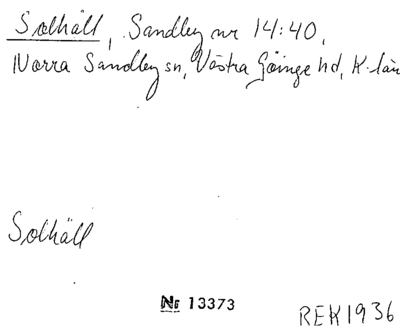 Solhäll, Sandby nr 14:40,
Norra Sandby sn, Västra Göinge hd, K-län
Solhäll
Nr 13373
REK1936